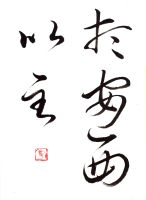 於安西
以主